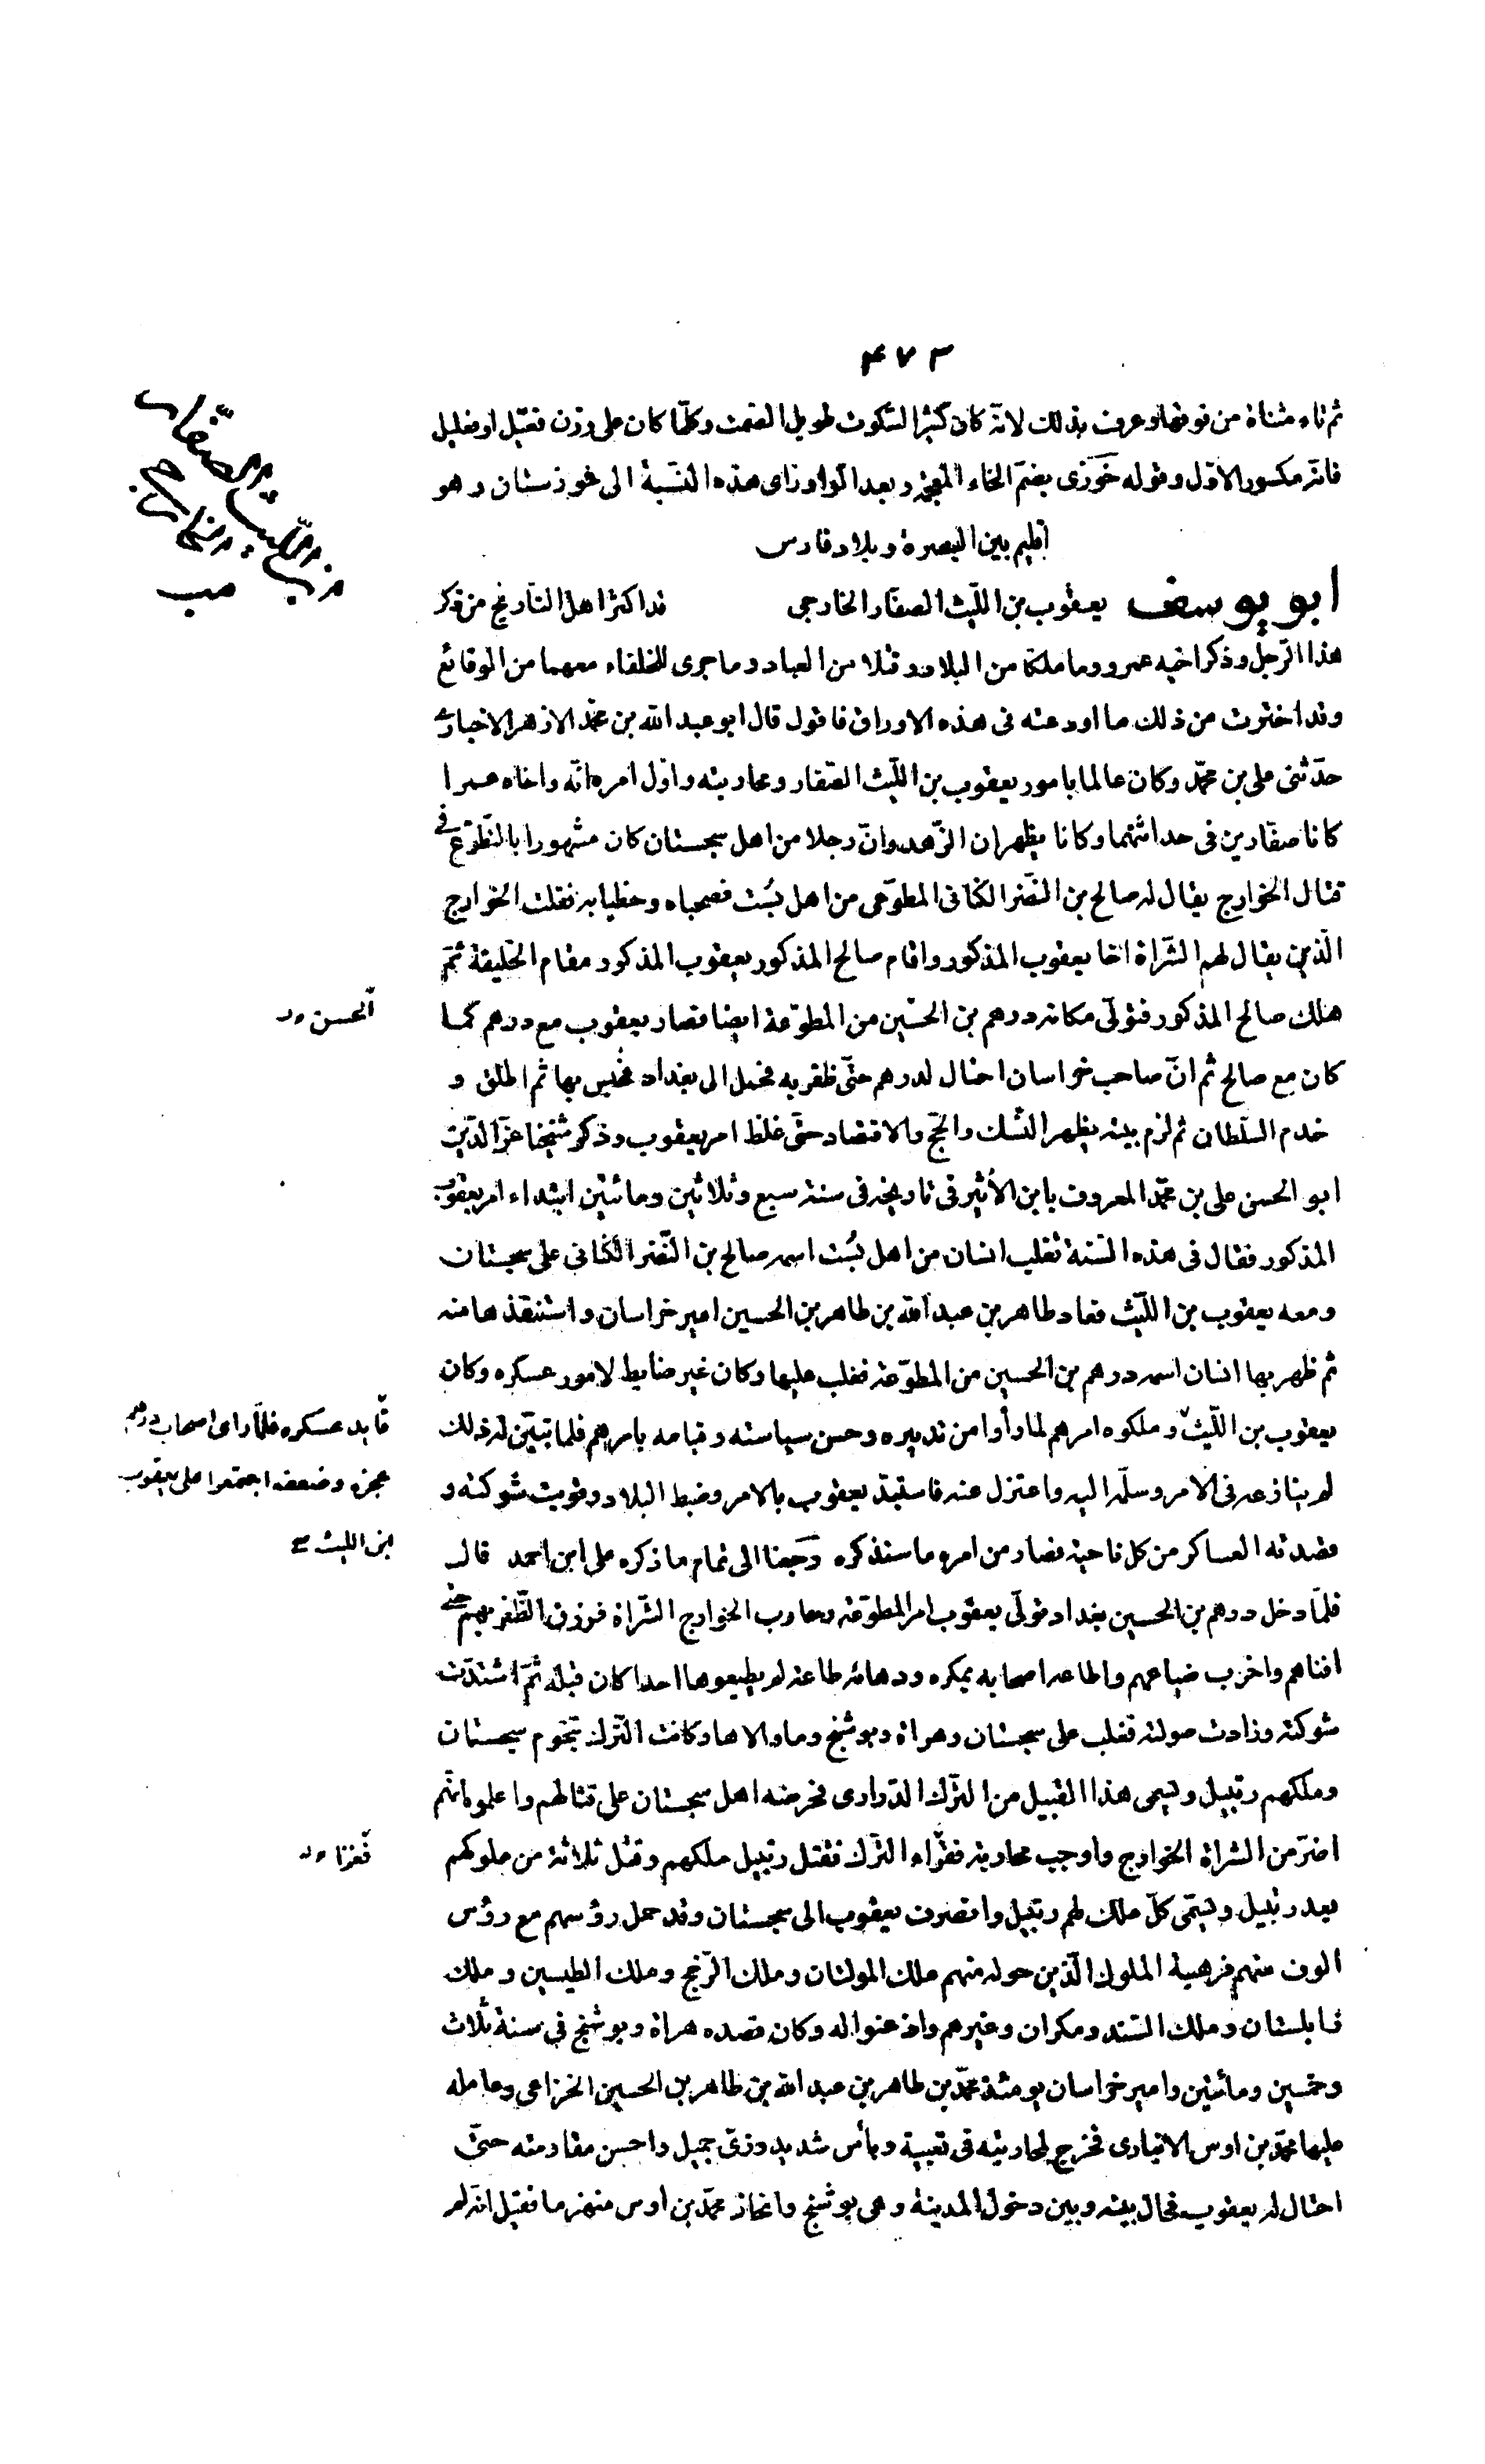 ٤٧٣
ثم تاء مثناة من فوقها وعرف بذلك لانّه كان كثير السّكوت طويل الصّمت وكلّما كان على وزن فعّيل او فعليل
فانّه مكسور الاوّل وقوله خوزى بضمّ الخاء المعجمة وبعد الواو زاى هذه النّسبة الى خوزستان وهو
اقليم بين البصرة وبلاد فارس
ابو يوسف يعقوب بن اللّيث الصفّار الخارجى قد اكثر اهل التّاريخ من ذكر
هذا الرّجل وذكر اخيه عمرو وما ملكا من البلاد وقتلا من العباد وما جرى للخلفاء معهما من الوقائع
وقد اخترت من ذلك ما اودعته فى هذه الاوراق فاقول قال ابو عبد الله بن محمّد الازهر الاخبارى
حدّثنى على بن محمّد وكان عالما بامور يعقوب بن اللّيث الصّفار ومحاربته واوّل امره انّه واخاه عمرا
كانا صفّارين فى حداثتهما وكانا يظهران الزّهد وانّ رجلا من اهل سجستان كان مشهورا بالتّطوّع فى
قتال الخوارج يقال له صالح بن النّضر الكنانى المطوّعى من اهل بُست فصحباه وحظيا به فقتلت الخوارج
الّذين يقال لهم الشّراة اخا يعقوب المذكور واقام صالح المذكور يعقوب المذكور مقام الخليفة ثمّ
هلك صالح المذكور فتولّى مكانه درهم بن الحسين من المطوّعة ايضا فصار يعقوب مع درهم كما
كان مع صالح ثم انّ صاحب خراسان احتال لدرهم حتّى ظفر به فحمل الى بغداد فحُبس بها ثم اطلق و
خدم السّلطان ثم لزم بيته يظهر النّسك والحجّ والاقتصاد حتّى غلظ امر يعقوب وذكر شيخنا عزّ الدّين
ابو الحسن على بن محمّد المعروف بابن الأثير فى تاريخه فى سنة سبع وثلاثين ومائتين ابتداء امر يعقوب
المذكور فقال فى هذه السّنة تغلب انسان من اهل بُست اسمه صالح بن النّضر الكنانى على سجستان
ومعه يعقوب بن اللّيث فعاد طاهر بن عبد الله بن طاهر بن الحسين امير خراسان واستنقذها منه
ثم ظهر بها انسان اسمه درهم بن الحسين من المطوّعة فغلب عليها وكان غير ضابط لامور عسكره وكان
يعقوب بن اللّيث وملكوه امرهم لما رأوا من تدبيره وحسن سياسته وقيامه بامرهم فلما تبيّن له ذلك
لم ينازعه فى الامر وسلّمه اليه واعتزل عنه فاستبدّ يعقوب بالامر وضبط البلاد وقويت شوكته و
قصدته العساكر من كل ناحية فصار من امره ما سنذكره رجعنا الى تمام ما ذكره على ابن احمد قال
فلمّا دخل درهم بن الحسين بغداد تولّى يعقوب امر المطوّعة وحارب الخوارج الشّراة فرزق الظّفر بهم حتى
افناهم واخرب ضياعهم واطاعه اصحابه بمكره ودهائه طاعة لم يطيعوها احدا كان قبله ثمّ اشتدّت
شوكته وزادت صولته فغلب على سجستان وهراة وبوشنج وما والاها وكانت التّرك بتخوم سجستان
وملكهم رتبيل ويسمى هذا القبيل من الترك الدّرارى فحرضه اهل سجستان على قتالهم واعلموه انّهم
اضرّ من الشراة الخوارج واوجب محاربة فغزاء الترك فقتل رتبيل ملكهم وقتل ثلاثة من ملوكهم
بعد رتبيل ويسمّى كلّ ملك لهم رتبيل وانصرف يعقوب الى سجستان وقد حمل رؤسهم مع رؤس
الوف منهم فرهبة الملوك الّذين حوله منهم ملك المولتان وملك الرّخج وملك الطبسين وملك
زابلستان وملك السّند ومكران وغيرهم واذعنوا له وكان قصده هراة وبوشنج فى سنة ثلاث
وخمسين ومائتين وامير خراسان يومئذ محمّد بن طاهر بن عبد الله بن طاهر بن الحسين الخزاعى وعامله
عليها محمّد بن اوس الانبارى فخرج لمحاربته فى تعبية وبأس شديد وزىّ جميل واحسن مقاومته حتّى
احتال له يعقوب فحال بينه وبين دخول المدينة وهى بوشنج وانحاز محمّد بن اوس منهزما فقيل انّه لم
يعقوب بن اللّيث الصّفّار الخارجى
الحسن
قايد عسكره فلمّا راى اصحاب درهم
عجزه وضعفه اجتمعوا على يعقوب
بن الليث
فغزا